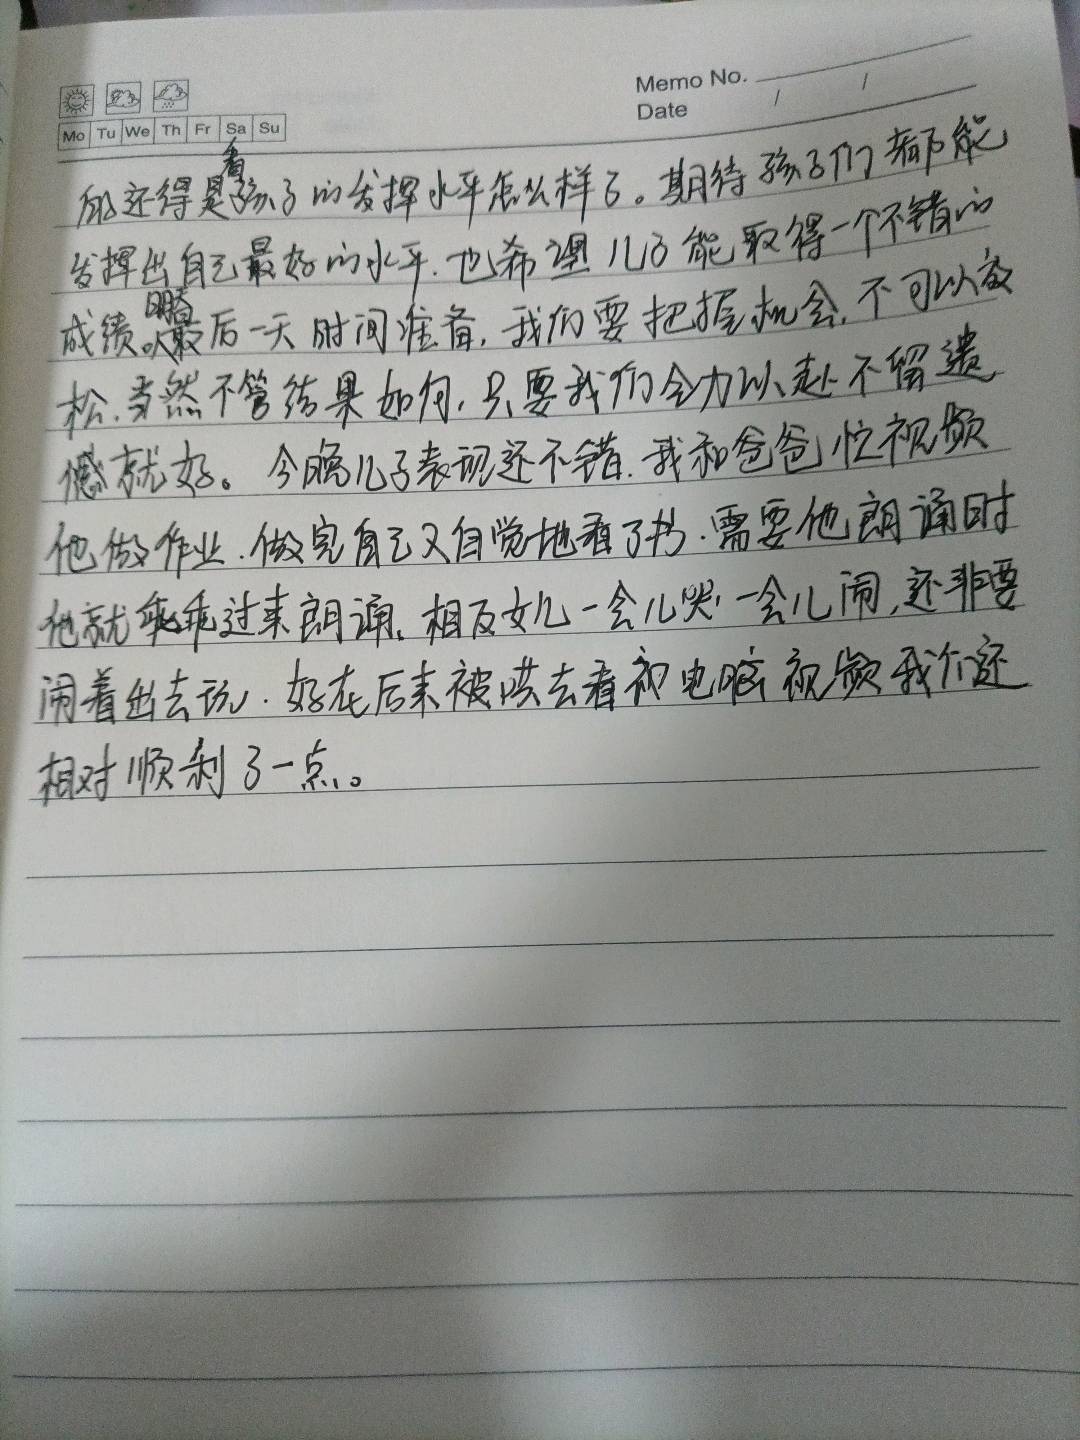 Memo No.
Date / /
Mo Tu We Th Fr Sa Su
看
都还得是孩子的发挥水平怎么样了。期待孩子们都能
发挥出自己最好的水平.也希望儿子能取得一个不错的
成绩。最后一天时间准备,我们要把握机会,不可以放
松.当然不管结果如何,只要我们全力以赴不留遗
憾就好。今晚儿子表现还不错.我和爸爸忙视频
他做作业.做完自己又自觉地看了书.需要他朗诵时
他就乖乖过来朗诵.相反女儿一会儿哭一会儿闹,还非要
闹着出去玩.好在后来被哄去看电脑视频我们还
相对顺利了一点。